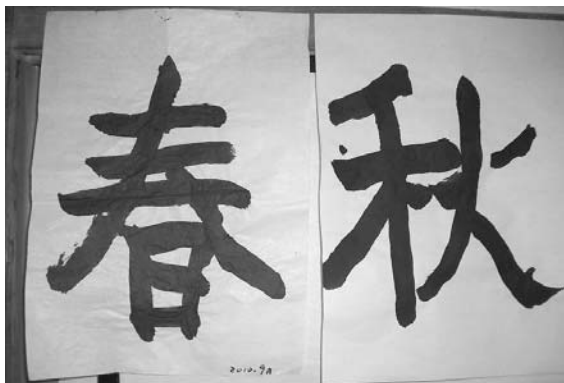 春秋
2010.9月